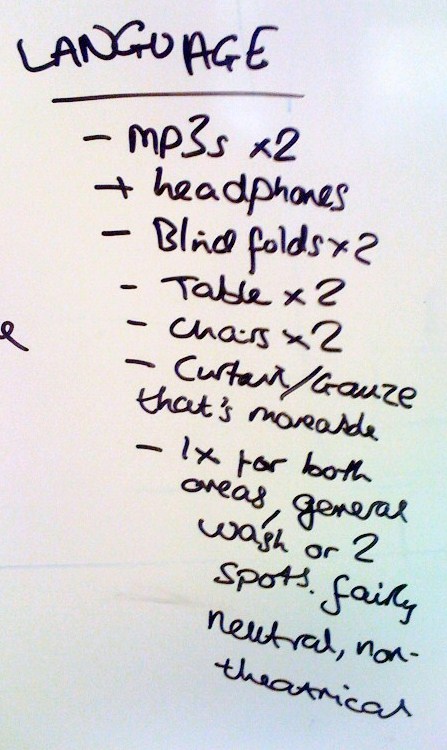 LANGUAGE
- MP3s x2
+ headphones
- Blind folds x2
- Table x 2
- Chairs x 2
- Curtain/Gauze
that's moveable
- 1x for both
areas, general
wash or 2
spots. fairly
neutral, non-
theatrical